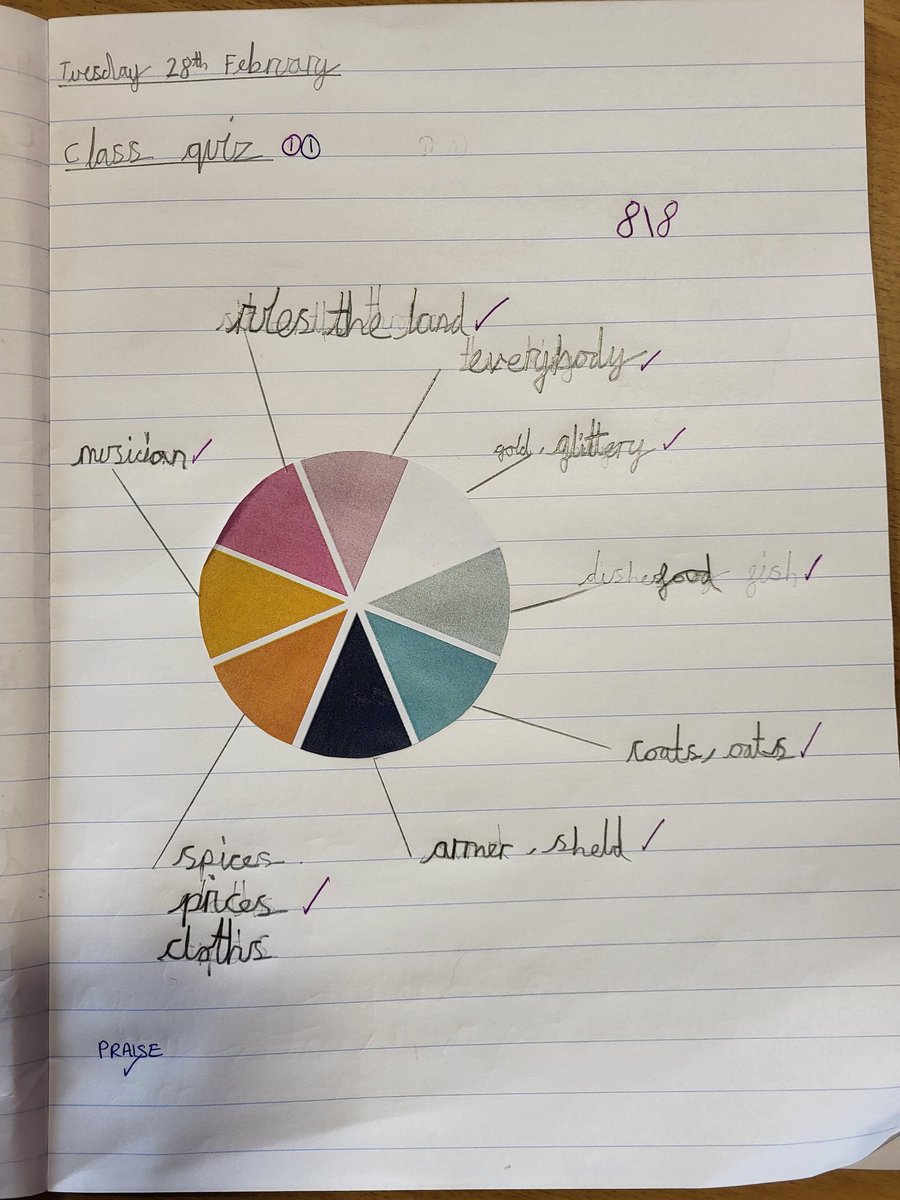 Tuesday 28th February
Class quiz 11
8\8
rules the land ✓
everybody ✓
gold, glittery ✓
musician ✓
dishes food fish ✓
roats, oats ✓
armer, sheld ✓
spices
prices ✓
cloths
PRAISE ✓